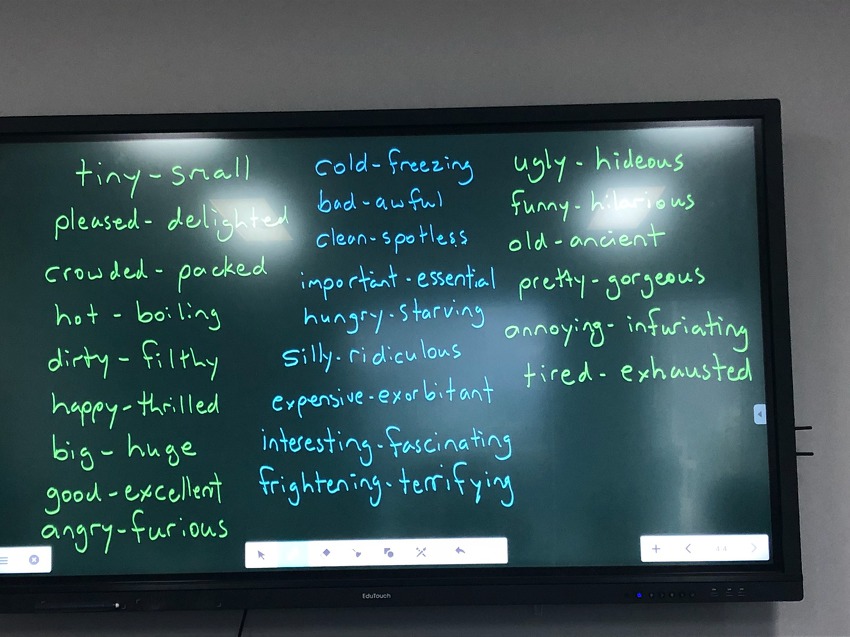 tiny - small
pleased - delighted
crowded - packed
hot - boiling
dirty - filthy
happy - thrilled
big - huge
good - excellent
angry - furious
cold - freezing
bad - awful
clean - spotless
important - essential
hungry - starving
silly - ridiculous
expensive - exorbitant
interesting - fascinating
frightening - terrifying
ugly - hideous
funny - hilarious
old - ancient
pretty - gorgeous
annoying - infuriating
tired - exhausted
EduTouch